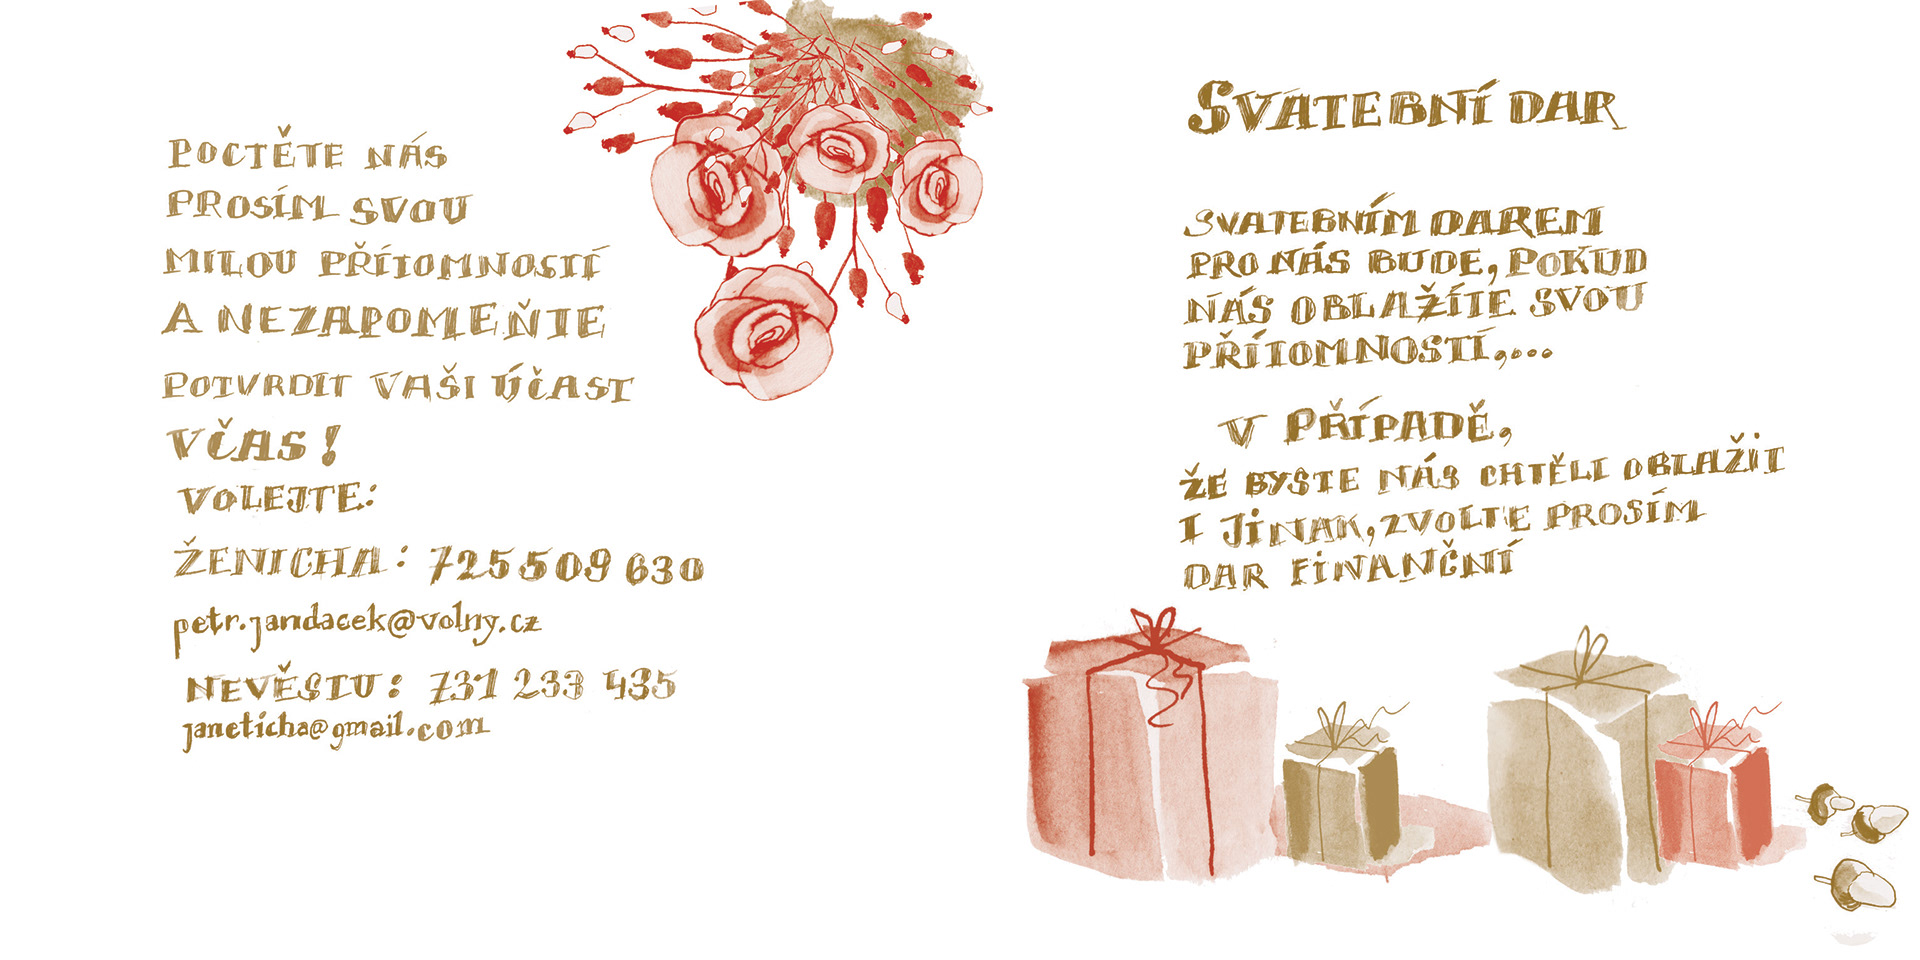 POCTĚTE NÁS
PROSÍM SVOU
MILOU PŘÍTOMNOSTÍ
A NEZAPOMEŇTE
POTVRDIT VAŠI ÚČAST
VČAS!
VOLEJTE:
ŽENICHA: 725 509 630
petr.jandacek@volny.cz
NEVĚSTU: 731 233 435
janeticha@gmail.com
SVATEBNÍ DAR
SVATEBNÍM DAREM
PRO NÁS BUDE, POKUD
NÁS OBLAŽÍTE SVOU
PŘÍTOMNOSTÍ,...
V PŘÍPADĚ,
ŽE BYSTE NÁS CHTĚLI OBLAŽIT
I JINAK, ZVOLTE PROSÍM
DAR FINANČNÍ